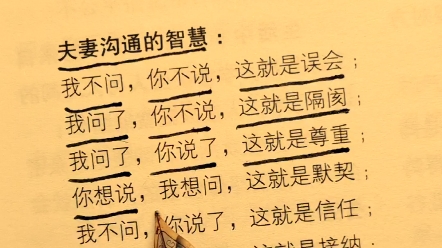 夫妻沟通的智慧：
我不问，你不说，这就是误会；
我问了，你不说，这就是隔阂；
我问了，你说了，这就是尊重；
你想说，我想问，这就是默契；
我不问，你说了，这就是信任；
这就是接纳